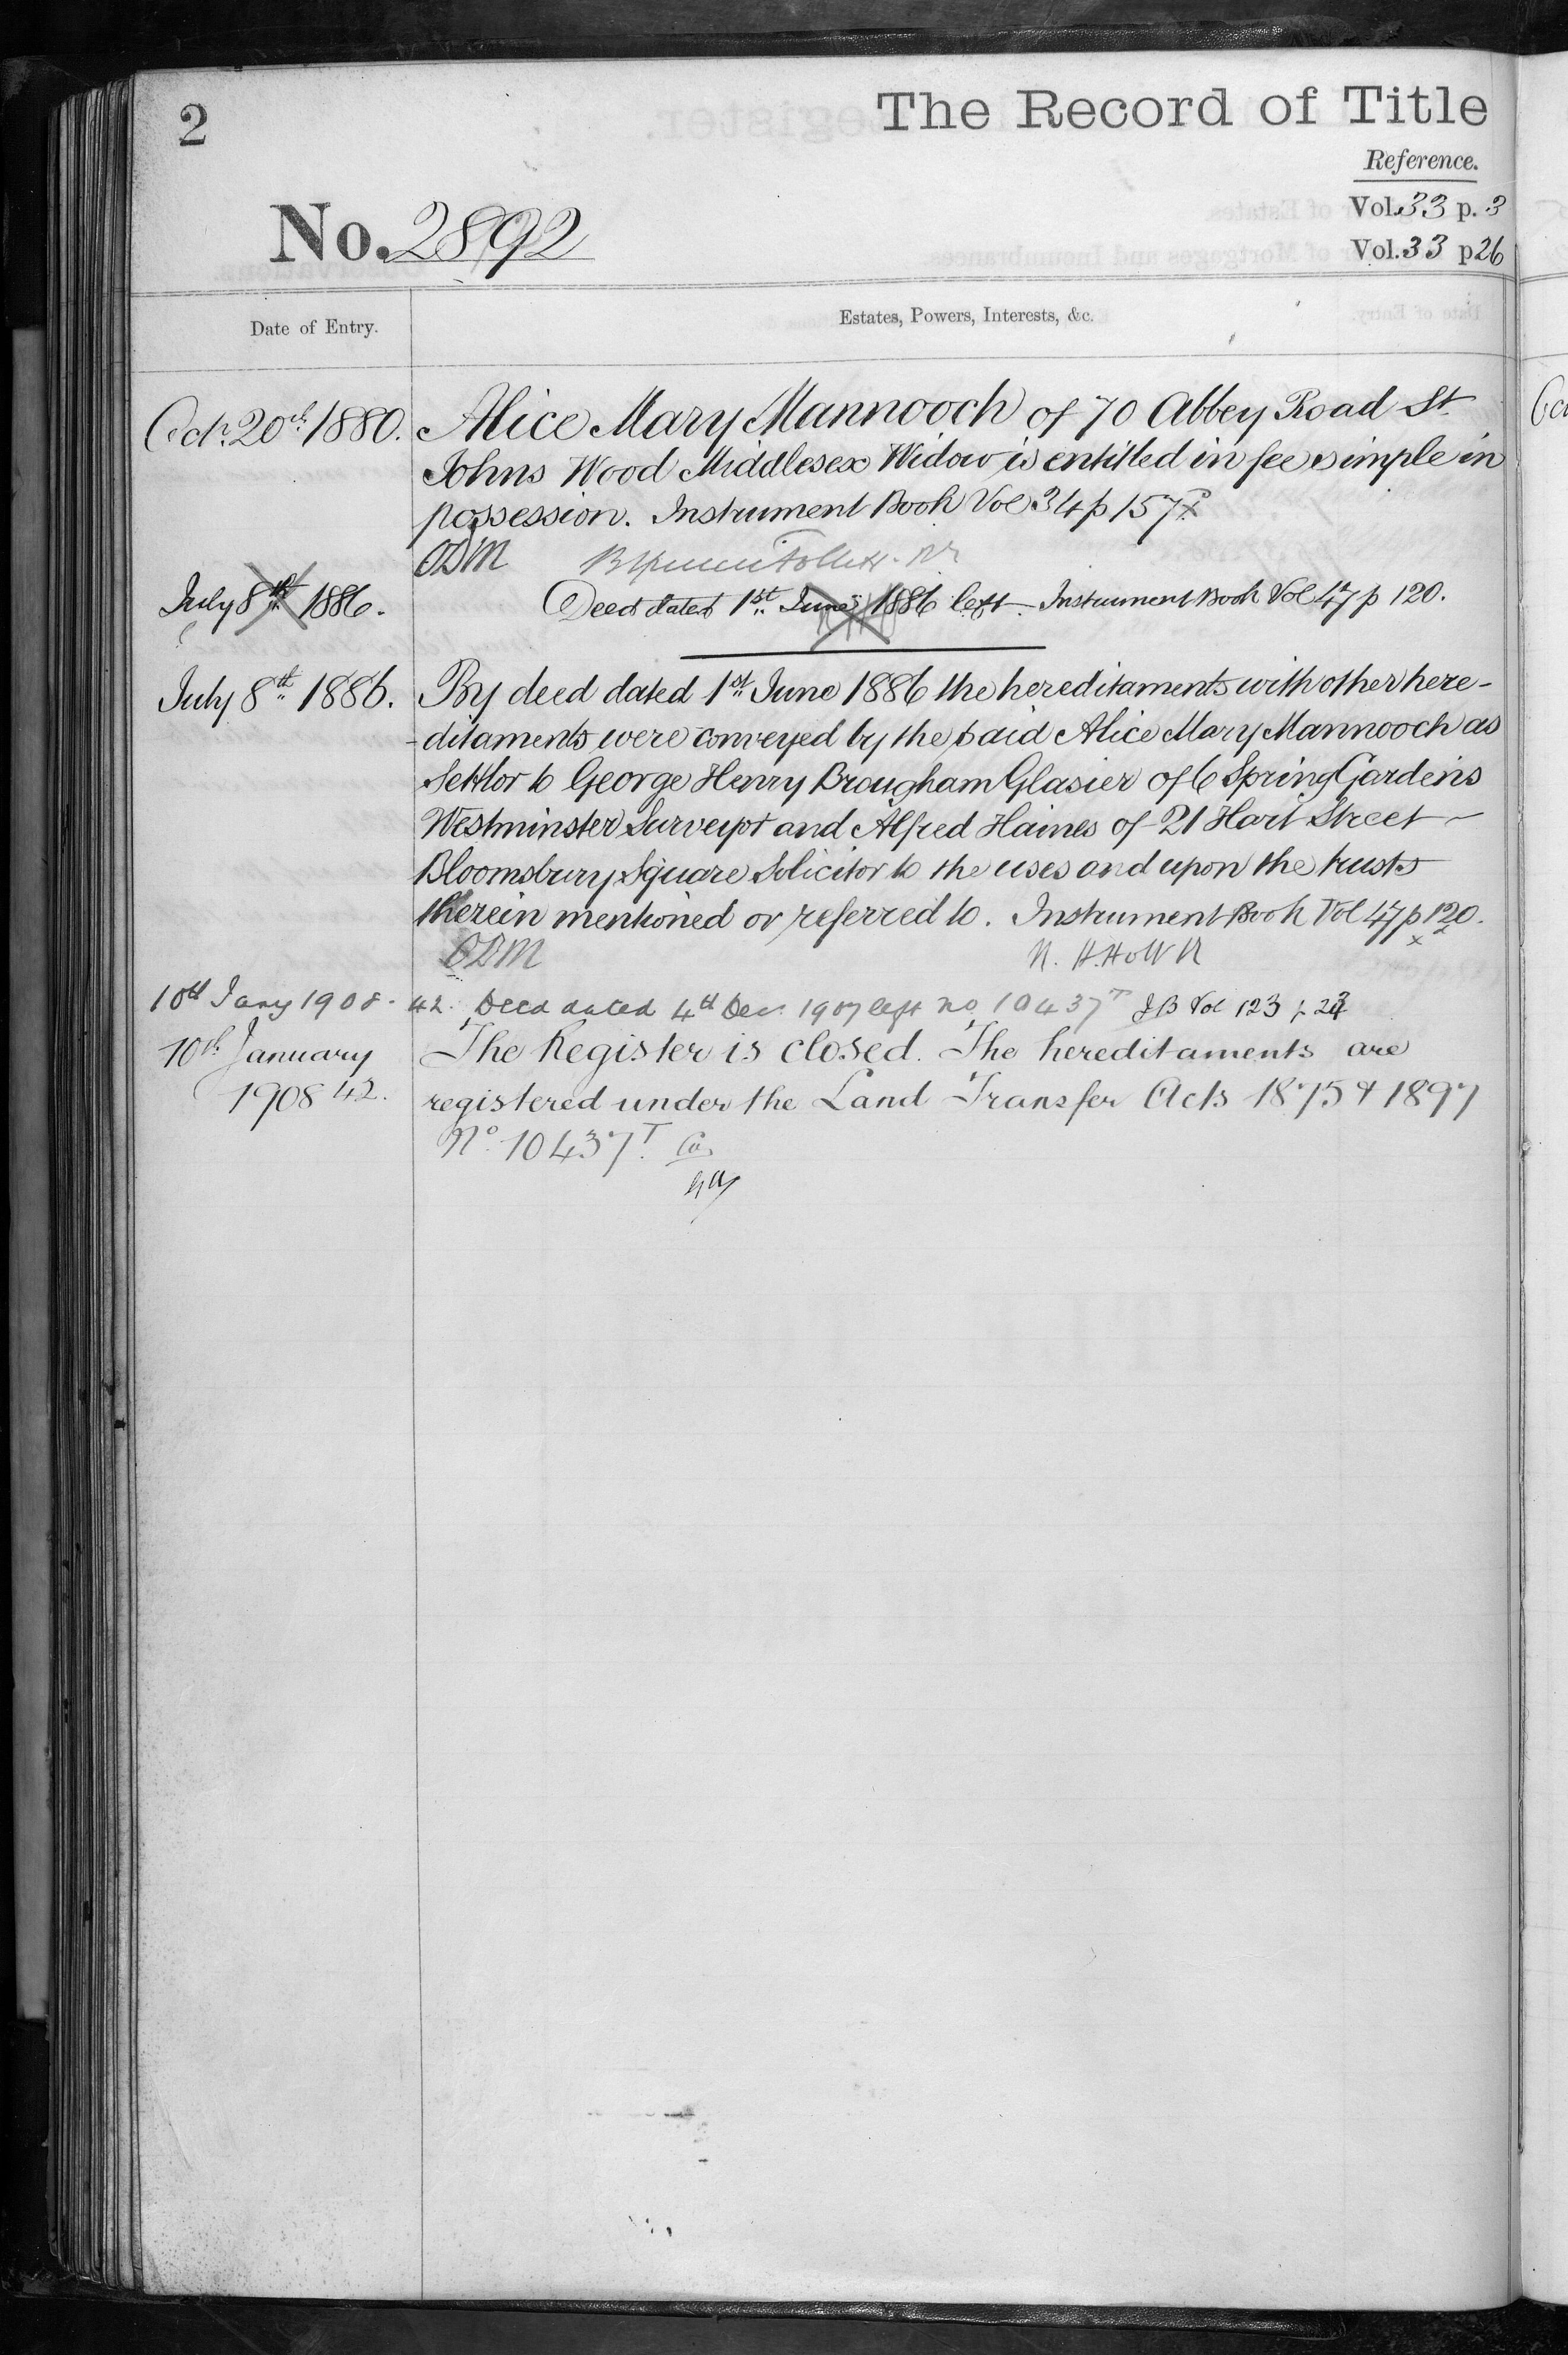 2
The Record of Title
Reference.
No. 2892
Vol. 33 p. 3
Vol. 33 p 26
Date of Entry.
Estates, Powers, Interests, &c.
Octr. 20th 1880. Alice Mary Mannooch of 70 Abbey Road St.
Johns Wood Middlesex Widow is entitled in fee simple in
possession. Instrument Book Vol 34 p 157 x
ODM
July 8th 1886. Deed dated 1st June 1886 left. Instrument Book Vol 47 p 120.
July 8th 1886. By deed dated 1st June 1886 the hereditaments with other here-
-ditaments were conveyed by the said Alice Mary Mannooch as
Settlor to George Henry Brougham Glasier of 6 Spring Gardens
Westminster Surveyor and Alfred Haines of 21 Hart Street
Bloomsbury Square Solicitor to the uses and upon the trusts
therein mentioned or referred to. Instrument Book Vol 47 p 120.
x
ODM
10th Jany 1908. 42. Deed dated 4th Dec. 1907 left no 10437T IB Vol 123 p
10th January The Register is closed. The hereditaments are
1908 42. registered under the Land Transfer Acts 1875 & 1897
No. 10437T.